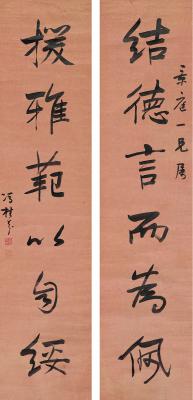 結德言而為佩
景庭一兄屬
援雅範以自綏
馮桂芬